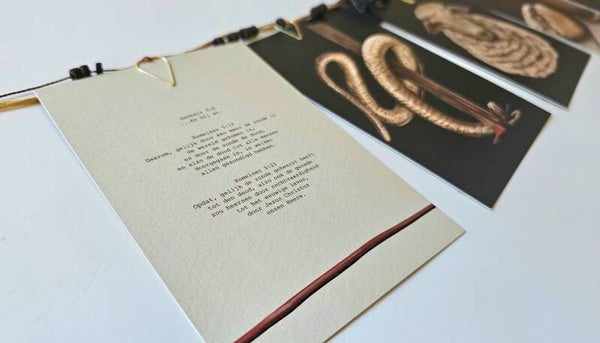 Genesis 3:6
...En hij at.
Romeinen 5:12
Daarom, gelijk door een mens de zonde in
de wereld gekomen is,
en door de zonde de dood,
en alzo de dood tot alle mensen
doorgegaan is, in welken
allen gezondigd hebben.
Romeinen 5:21
Opdat, gelijk de zonde geheerst heeft
tot den dood, alzo ook de genade
zou heersen door rechtvaardigheid
tot het eeuwige leven,
door Jezus Christus
onzen Heere.